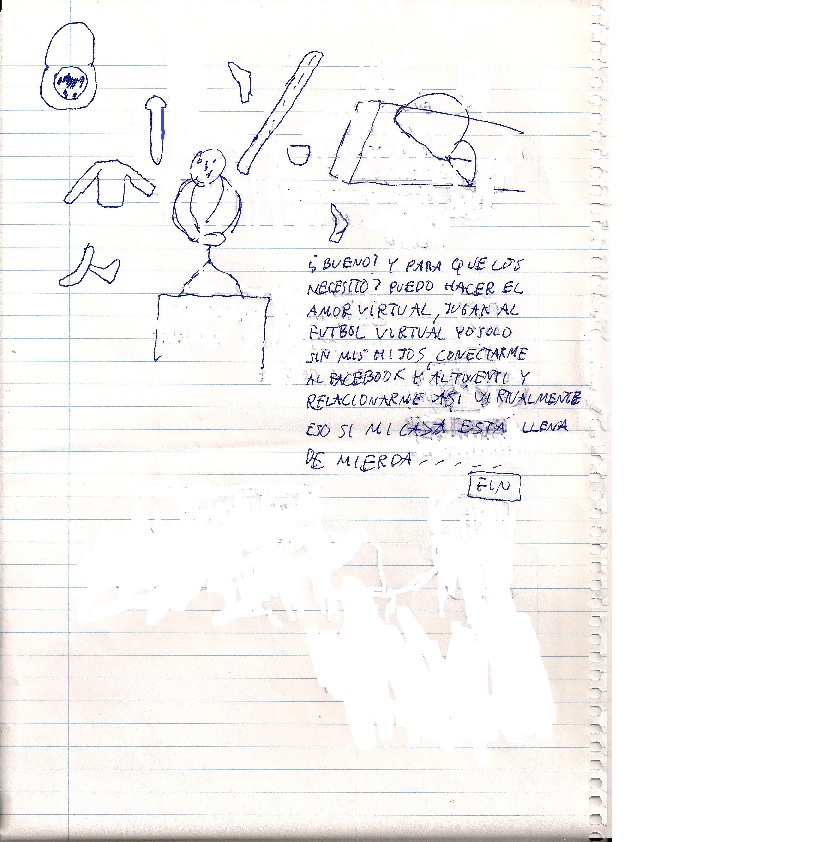 ¿BUENO? Y PARA QUE LOS
NECESITO? PUEDO HACER EL
AMOR VIRTUAL, JUGAR AL
FUTBOL VIRTUAL YO SOLO
SIN MIS HIJOS CONECTARME
AL FACEBOOK Y AL TUENTI Y
RELACIONARME ASI VIRTUALMENTE
ESO SI MI CASA ESTA LLENA
DE MIERDA------
FIN